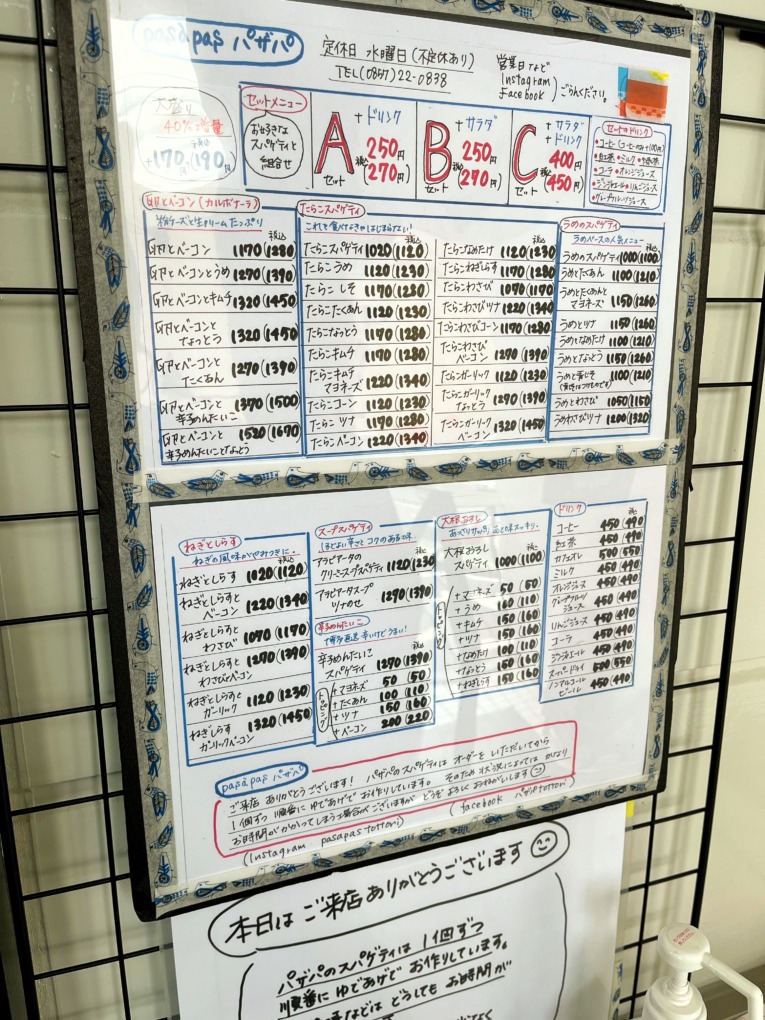 pasàpas パザパ
定休日 水曜日(不定休あり)
TEL(0857)22-0838
営業日など
Instagram
Facebook
ごらんください。
大盛り
40%増量
税込
+170円(190円)
セットメニュー
お好きな
スパゲティと
組合せ
A セット
+ドリンク
250円
税込(270円)
B セット
+サラダ
250円
税込(270円)
C セット
+サラダ
+ドリンク
400円
税込(450円)
セットのドリンク
•紅茶 •ミルク
•コーラ •オレンジジュース
•ジンジャエール •りんごジュース
•グレープフルーツジュース
卵とベーコン(カルボナーラ)
粉チーズと生クリームたっぷり
税込
卵とベーコン 1170(1280)
卵とベーコンとうめ 1270(1390)
卵とベーコンとキムチ 1320(1450)
卵とベーコンと
なっとう 1320(1450)
卵とベーコンと
たくあん 1270(1390)
卵とベーコンと
辛子めんたいこ 1370(1500)
卵とベーコンと
辛子めんたいことなっとう 1520(1670)
たらこスパゲティ
これを食べなきゃはじまらない!
税込
たらこスパゲティ 1020(1120)
たらこうめ 1120(1230)
たらこしそ 1170(1280)
たらこたくあん 1120(1230)
たらこなっとう 1170(1280)
たらこキムチ 1170(1280)
たらこキムチ
マヨネーズ 1220(1340)
たらこコーン 1120(1230)
たらこツナ 1170(1280)
たらこベーコン 1220(1340)
税込
たらこなめたけ 1120(1230)
たらこねぎしらす 1170(1280)
たらこわさび 1070(1170)
たらこわさびツナ 1220(1340)
たらこわさびコーン 1170(1280)
たらこわさび
ベーコン 1270(1390)
たらこガーリック 1120(1230)
たらこガーリック
なっとう 1270(1390)
たらこガーリック
ベーコン 1320(1450)
うめのスパゲティ
うめベースの人気メニュー
税込
うめのスパゲティ 1000(1100)
うめとたくあん 1100(1210)
うめとたくあんと
マヨネーズ 1150(1260)
うめとツナ 1150(1260)
うめとなめたけ 1100(1210)
うめとなっとう 1150(1260)
うめと青じそ 1100(1210)
うめとわさび 1050(1150)
うめわさびツナ 1200(1320)
ねぎとしらす
ねぎの風味がやみつきに。
税込
ねぎとしらす 1020(1120)
ねぎとしらすと
ベーコン 1220(1340)
ねぎとしらすと
わさび 1070(1170)
ねぎとしらすと
わさびとベーコン 1270(1390)
ねぎとしらすと
ガーリック 1120(1230)
ねぎしらす
ガーリックベーコン 1320(1450)
スープスパゲティ
ほどよい辛さとコクのある味。
税込
アラビアータの
クリーミースープスパゲティ 1120(1230)
アラビアータスープ
ツナのせ 1270(1390)
辛子めんたいこ
博多直送 辛いけどうまい!
税込
辛子めんたいこ
スパゲティ 1270(1390)
トッピング
+マヨネーズ 50(50)
+たくあん 100(110)
+ツナ 150(160)
+ベーコン 200(220)
大根おろし
税込
大根おろし
スパゲティ 1000(1100)
トッピング
+マヨネーズ 50(50)
+うめ 100(110)
+キムチ 150(160)
+ツナ 150(160)
+なめたけ 100(110)
+なっとう 150(160)
+ねぎしらす 150(160)
ドリンク
税込
コーヒー 450(490)
紅茶 450(490)
カフェオレ 500(550)
ミルク 450(490)
オレンジジュース 450(490)
グレープフルーツ
ジュース 450(490)
りんごジュース 450(490)
コーラ 450(490)
ジンジャエール 450(490)
スーパードライ 500(550)
ノンアルコール
ビール 450(490)
pasàpas パザパ
ご来店ありがとうございます! パザパのスパゲティはオーダーをいただいてから
1個ずつ順番にゆであげでお作りしています。そのため状況によってはかなり
お時間がかかってしまう場合がございますがどうぞよろしくおねがいします
(Instagram pasapastottori) (facebook パザパtottori)
本日はご来店ありがとうございます
パザパのスパゲティは1個ずつ
順番にゆであげでお作りしています。
などはどうしてもお時間が